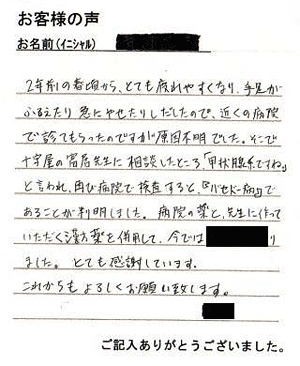 お客様の声
お名前(イニシャル)
2年前の春頃から、とても疲れやすくなり、手足が
ふるえたり急にやせたりしだしたので、近くの病院
で診てもらったのですが原因不明でした。そこで
十字屋の富居先生に相談したところ、「甲状腺系ですね」
と言われ、再び病院で検査すると、『バセドー病』で
あることが判明しました。病院の薬と、先生に作って
いただく漢方薬を併用して、今では り
ました。とても感謝しています。
これからもよろしくお願い致します。
ご記入ありがとうございました。